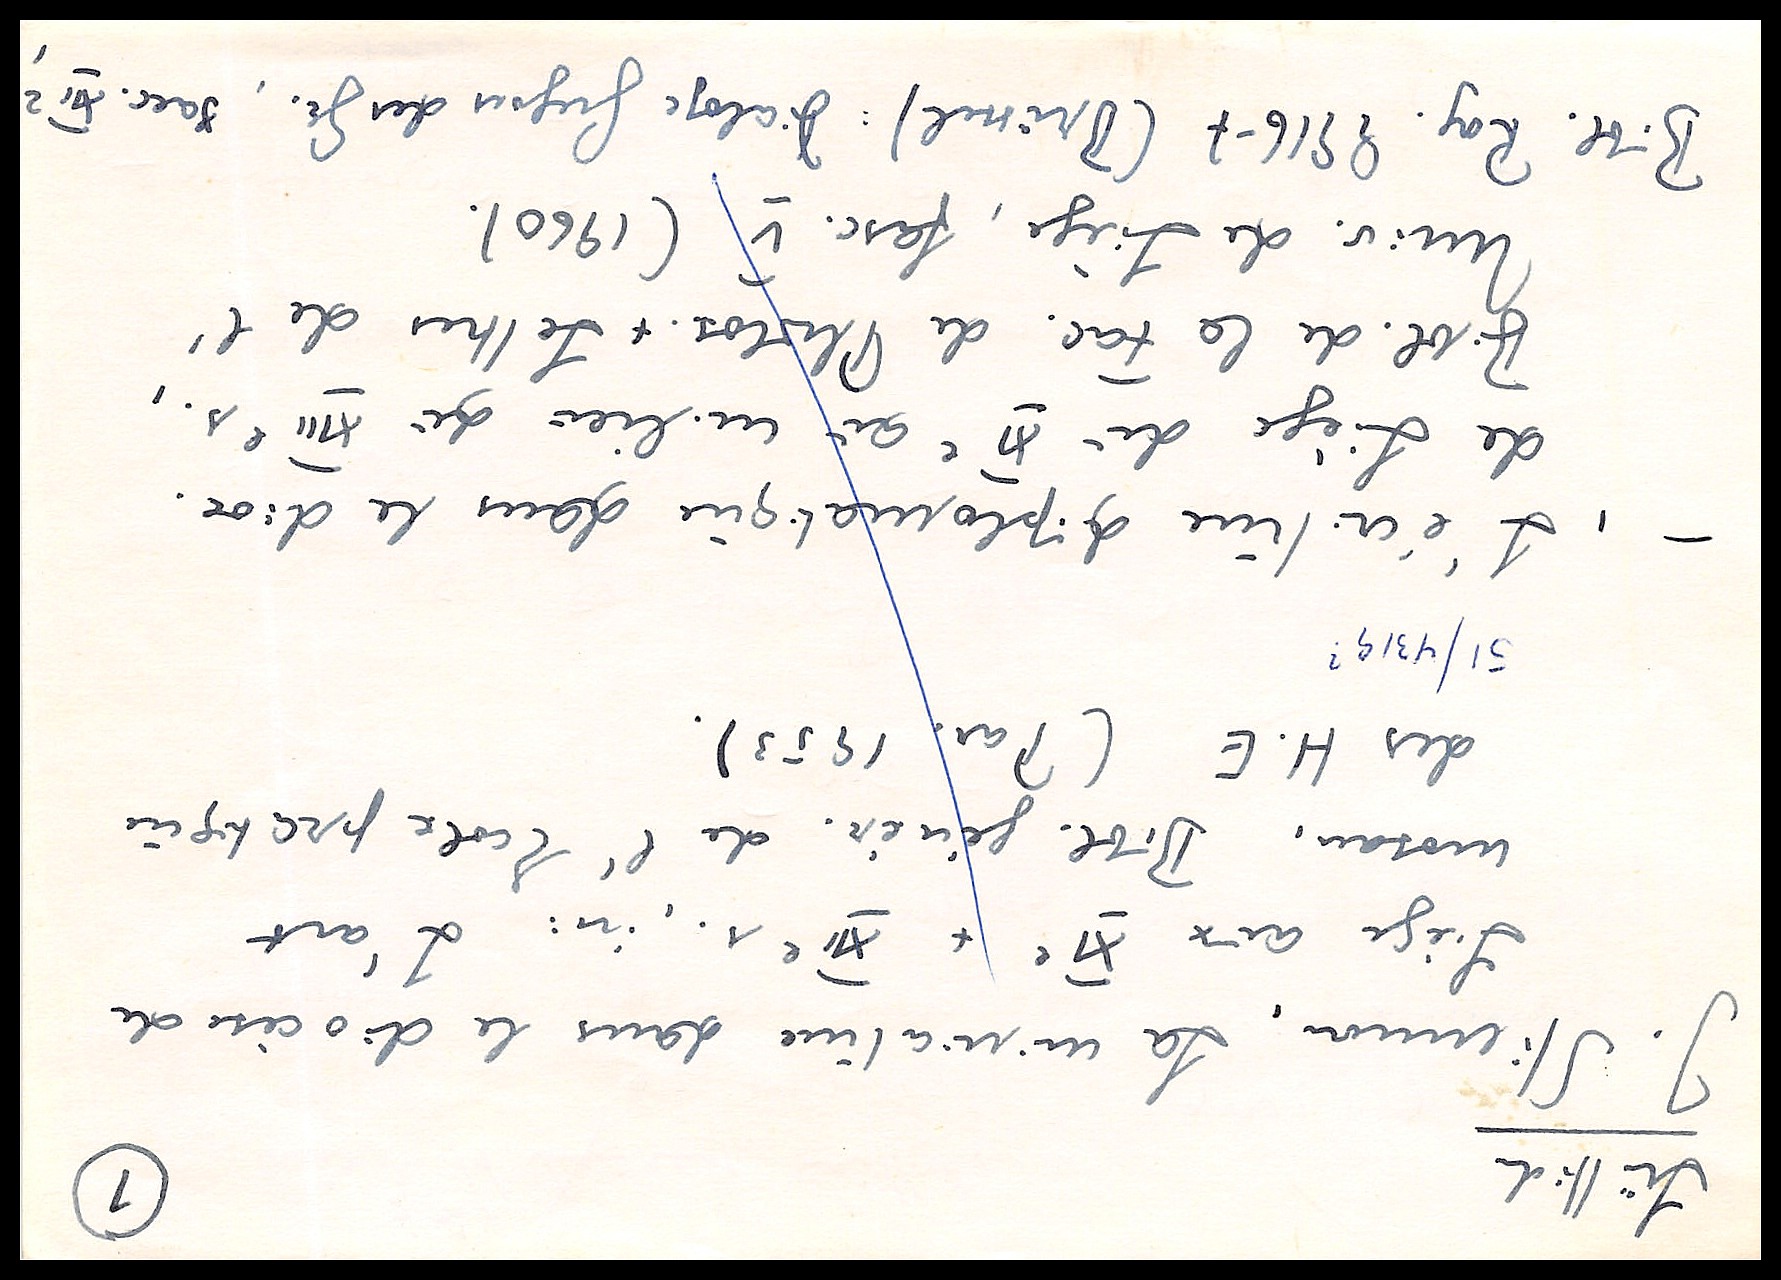 Lüttich
1
J. Stiennon, La miniature dans le diocèse de
Liège aux XIe + XIIe s., in: L'art
mosan, Bibl. génér. de l'École pratique
des H.E (Par. 1953).
51/43193
-, L'écriture diplomatique dans le dioc.
de Liège du XIe au milieu du XIIIe s.,
Bibl. de la Fac. de Philos. + Lettres de l'
Univ. de Liège, fasc. V (1960).
Bibl. Roy. 9916-7 (Brüssel): Dialoge Gregors des Gr., saec. XII,2,